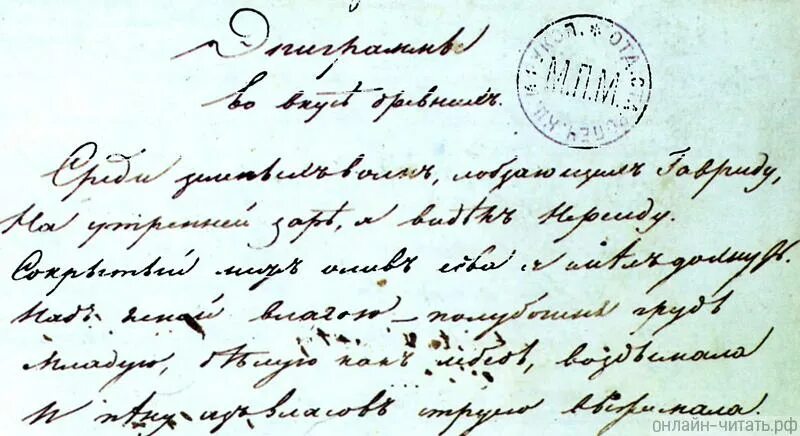 Эпиграммы
во вкусѣ древнихъ.
М.П.М.
Среди зеленыхъ волнъ, лобзающихъ Тавриду,
На утренней зарѣ, я видѣлъ Нереиду.
Сокрытый межъ оливъ едва я смѣлъ дохнуть.
Надъ ясной влагою – полубогиня грудь
Младую, бѣлую какъ лебедь, воздымала
И пѣну изъ власовъ струею выжимала.
онлайн-читать.рф